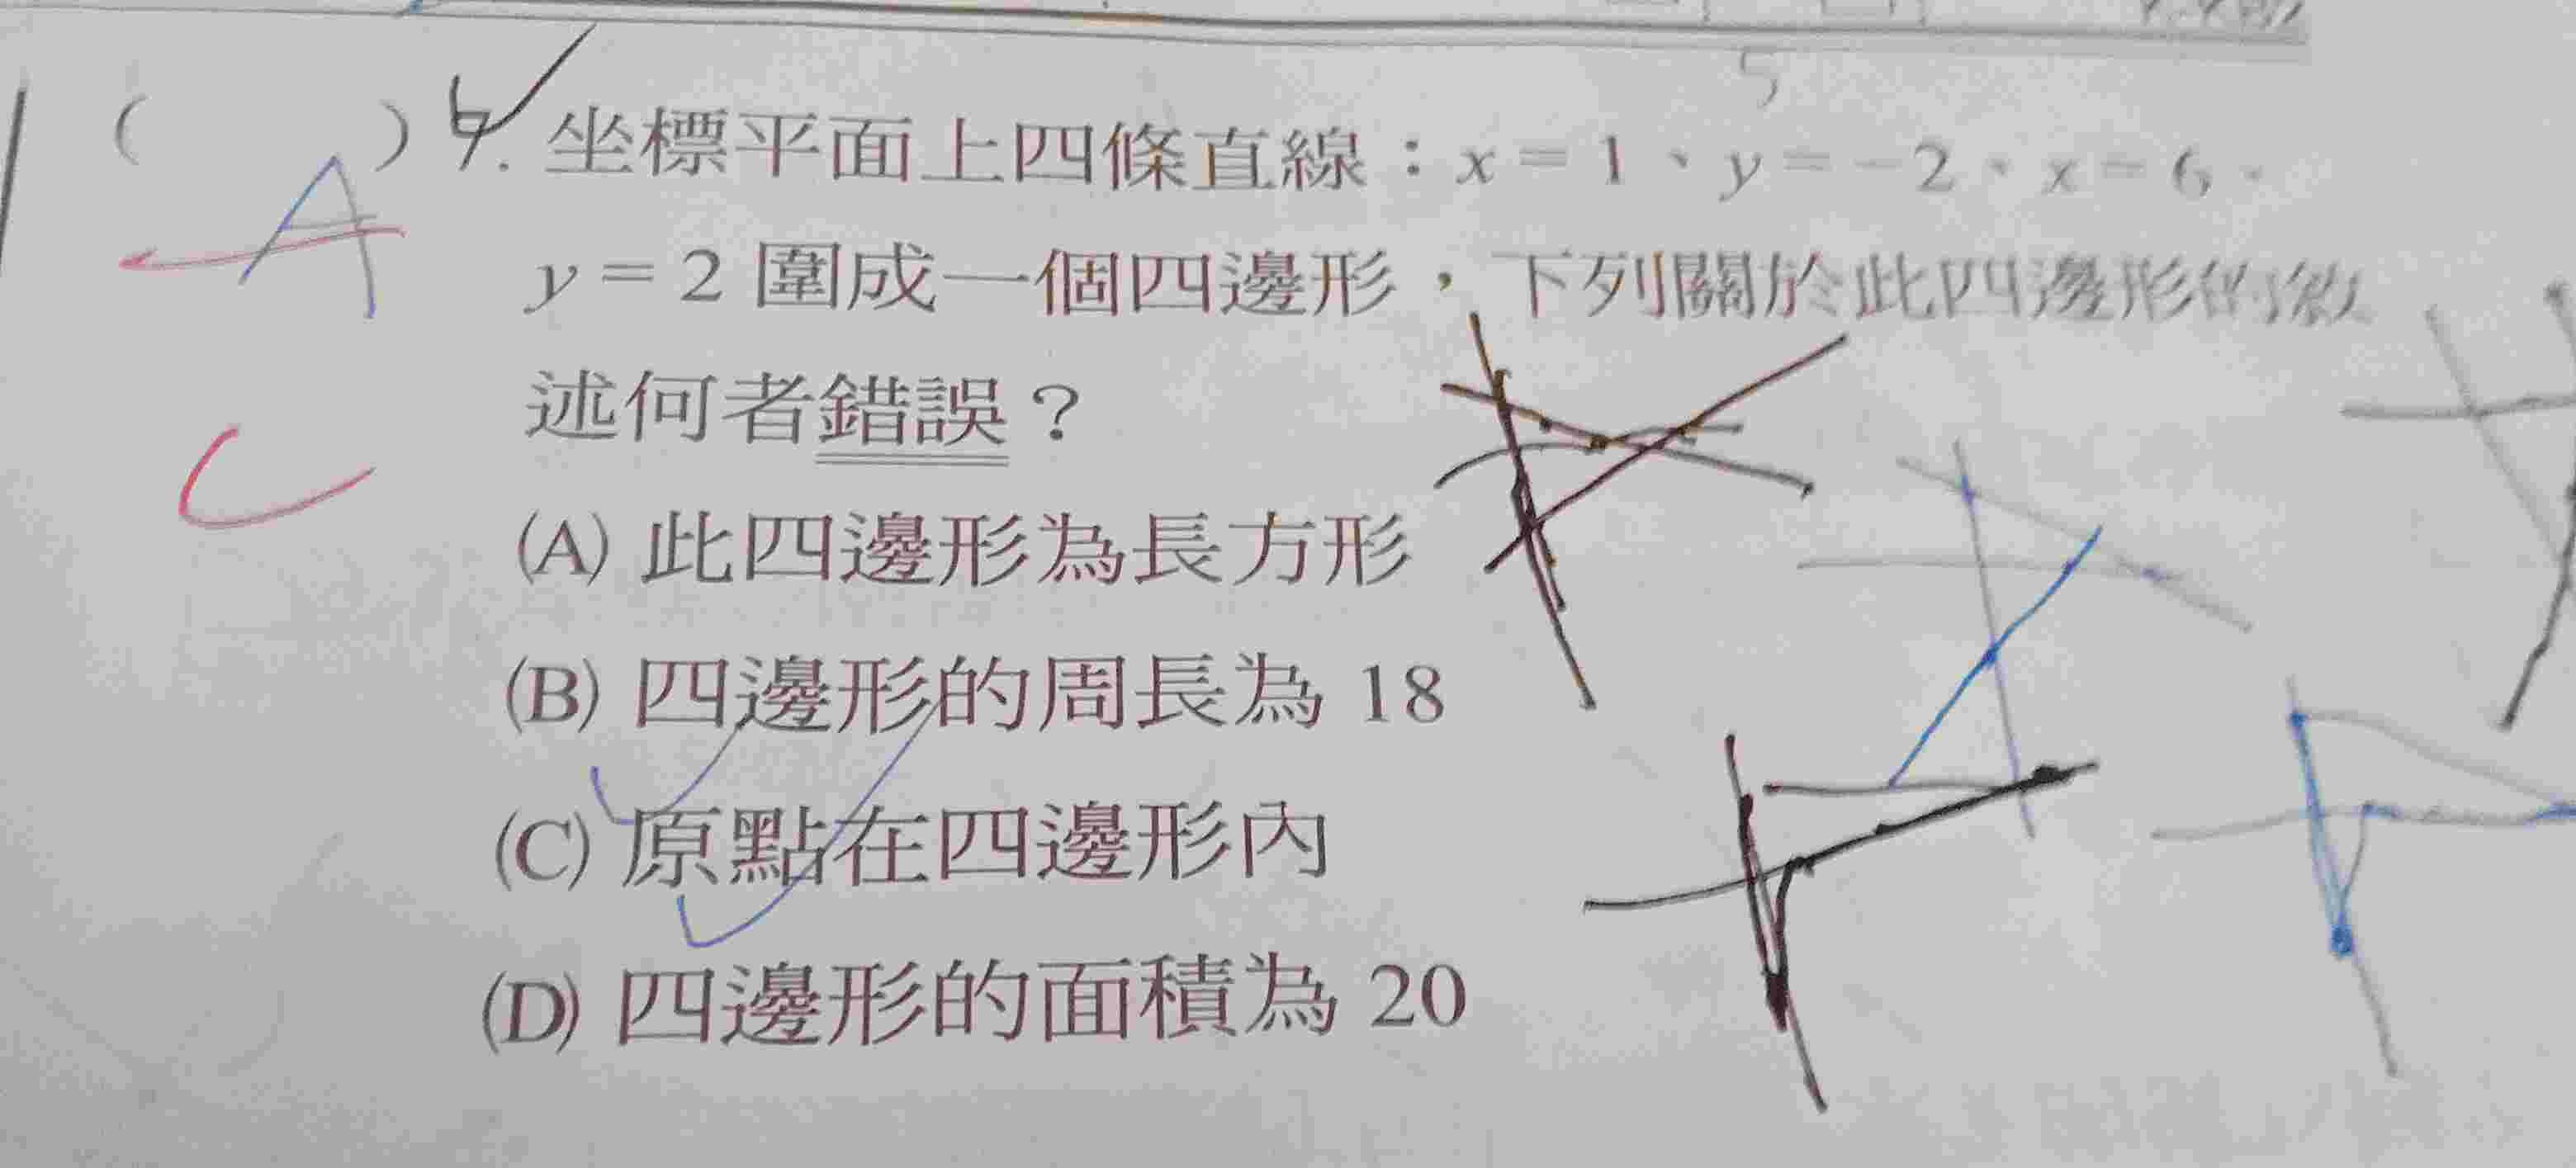 5
(　) 4. 坐標平面上四條直線：x＝1、y＝－2、x＝6、
A
y＝2 圍成一個四邊形，下列關於此四邊形的敘
述何者錯誤？
C
(A) 此四邊形為長方形
(B) 四邊形的周長為 18
(C) 原點在四邊形內
(D) 四邊形的面積為 20